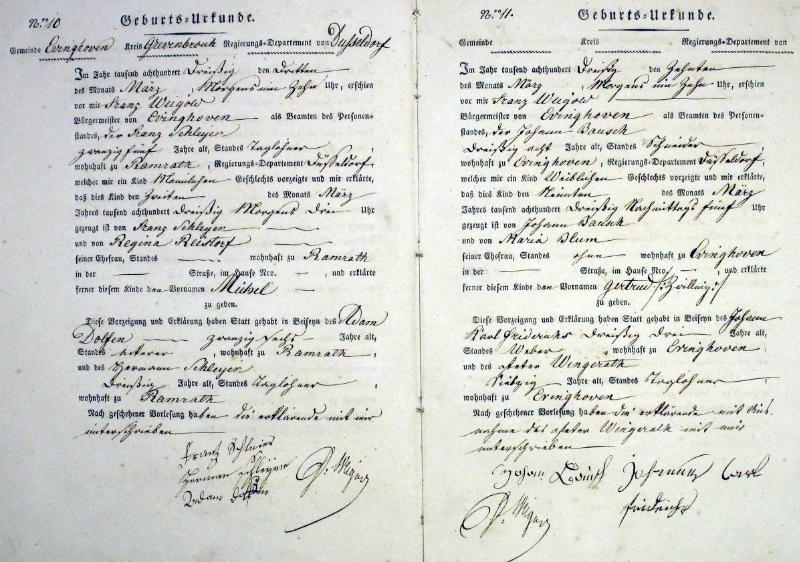 Nro 10
Geburts-Urkunde.
Gemeinde Evinghoven Kreis Grevenbroich Regierungs-Departement von Dusseldorf
Im Jahr tausend achthundert Dreißig den Dritten
des Monats März, Morgens um Zehn Uhr, erschien
vor mir Franz Wegow
Bürgermeister von Evinghoven als Beamten des Personen-
standes, der Franz Schleyen
zwanzig fünf Jahre alt, Standes Taglohner
wohnhaft zu Ramrath, Regierungs-Departement Dusseldorf,
welcher mir ein Kind Mannlichen Geschlechts vorzeigte und mir erklärte,
daß dies Kind den Zweiten des Monats März
Jahres tausend achthundert Dreißig Morgens drei Uhr
gezeugt ist von Franz Schleyen
und von Regina Reistorf
seiner Ehefrau, Standes — wohnhaft zu Ramrath
in der — Straße, im Hause Nro. — und erklärte
ferner diesem Kinde den Vornamen Michel
zu geben.
Diese Vorzeigung und Erklärung haben Statt gehabt in Beiseyn des Adam
Dolfen zwanzig sechs Jahre alt,
Standes Ackerer, wohnhaft zu Ramrath,
und des Hermann Schleyen
Dreißig Jahre alt, Standes Taglohner,
wohnhaft zu Ramrath
Nach geschehener Vorlesung haben die erklärende mit mir
unterschrieben
Franz Schleies
Herman Schleyen
Adam
Nro 11.
Geburts-Urkunde.
Gemeinde Kreis Regierungs-Departement von
Im Jahr tausend achthundert Dreißig den Zehnten
des Monats März, Morgens um Zehn Uhr, erschien
vor mir Franz Wegow
Bürgermeister von Evinghoven als Beamten des Personen-
standes, der Johann Bausch
Dreißig acht Jahre alt, Standes Schneider
wohnhaft zu Evinghoven, Regierungs-Departement Dusseldorf,
welcher mir ein Kind Weiblichen Geschlechts vorzeigte und mir erklärte,
daß dies Kind den Neunten des Monats März
Jahres tausend achthundert Dreißig Nachmittags fünf Uhr
gezeugt ist von Johann Bausch
und von Maria Blum
seiner Ehefrau, Standes ohne wohnhaft zu Evinghoven
in der — Straße, im Hause Nro. — und erklärte
ferner diesem Kinde den Vornamen Gertrud /: Zwilling :/
zu geben.
Diese Vorzeigung und Erklärung haben Statt gehabt in Beiseyn des Johann
Karl Friderichs Dreißig Drei Jahre alt,
Standes Weber wohnhaft zu Evinghoven,
und des Peter Wingerath
Jahre alt, Standes Taglohner,
wohnhaft zu Evinghoven
Nach geschehener Vorlesung haben die erklärende mit Aus-
nahme des Peter Wingerath mit mir
unterschrieben
Johann Carl
Friderichs